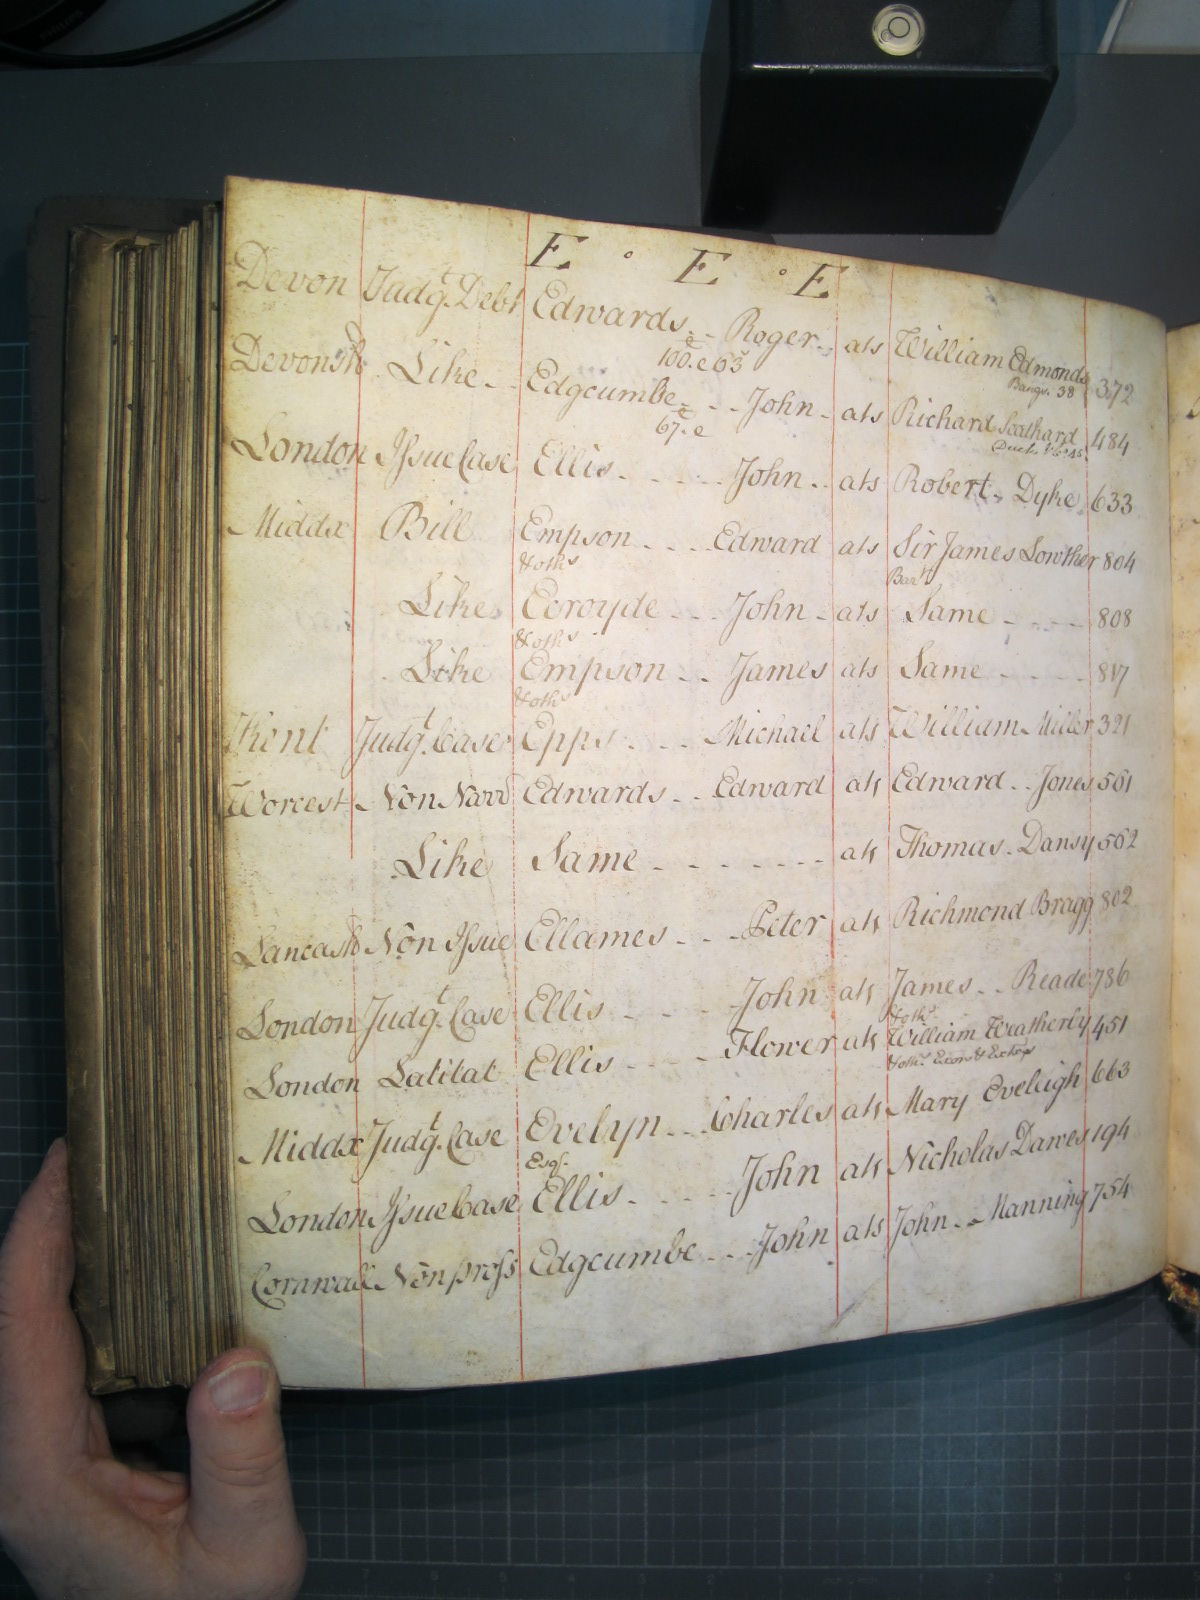 E . E . E
Devon Judgt. Debt Edwards - - Roger - ats William Edmonds 372
100. e 63 Bangr. 38
Devonsh Like - - Edgcumbe - - - John - ats Richard Scathard 484
67. e
London Issue Case Ellis - - - - - John - - ats Robert - Dyke 633
Middx Bill Empson - - - Edward ats Sir James Lowther 804
& oths Bart
Like Ecroyde - - John - ats Same - - - - 808
& oths
Like Empson - - James ats Same - - - - 817
& oths
Kent Judgt. Case Epps - - - Michael ats William Miller 321
Worcest - Non Narr Edwards - - Edward ats Edward - - Jones 561
Like Same - - - - - - - ats Thomas - Dansy 562
Lancash Non Issue Ellames - - - Peter ats Richmond Bragg 802
London Judgt. Case Ellis - - - - - John ats James - - Reade 786
& oths
London Latitat Ellis - - - - Flower ats William Weatherly 451
& oths Exors &
Middx Judgt. Case Evelyn - - - Charles ats Mary Eveleigh 663
Esqr.
London Issue Case Ellis - - - - - John ats Nicholas Dawes 194
Cornwall Non pross Edgcumbe - - - John ats John - - Manning 754
PHILIPS